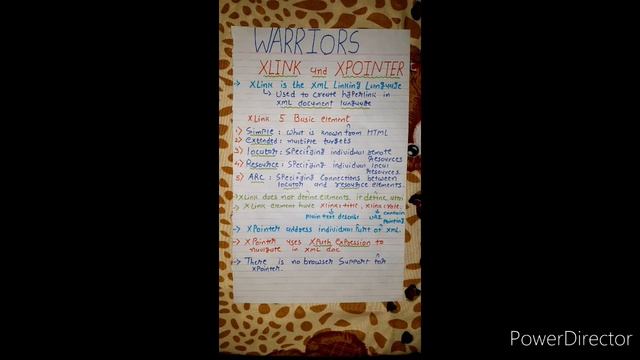 WARRIORS
XLINK and XPOINTER
→ XLink is the XML Linking Language
↳ Used to create hyperlink in
XML document language
XLink 5 Basic element
1) Simple: what is known from HTML
2) Extended: multiple targets
3) Locator: Specifying individual remote
resources
4) Resource: Specifying individual local
resources
5) ARC: Specifying Connections between
locator and resource elements.
→ XLink does not define elements, it define
→ XLink element have xlink:title, xlink:role.
plain text describe URI contain
pointing
→ XPointer address individual part of XML.
→ XPointer uses XPath Expression to
navigate in XML doc
→ There is no browser support for
XPointer.
PowerDirector